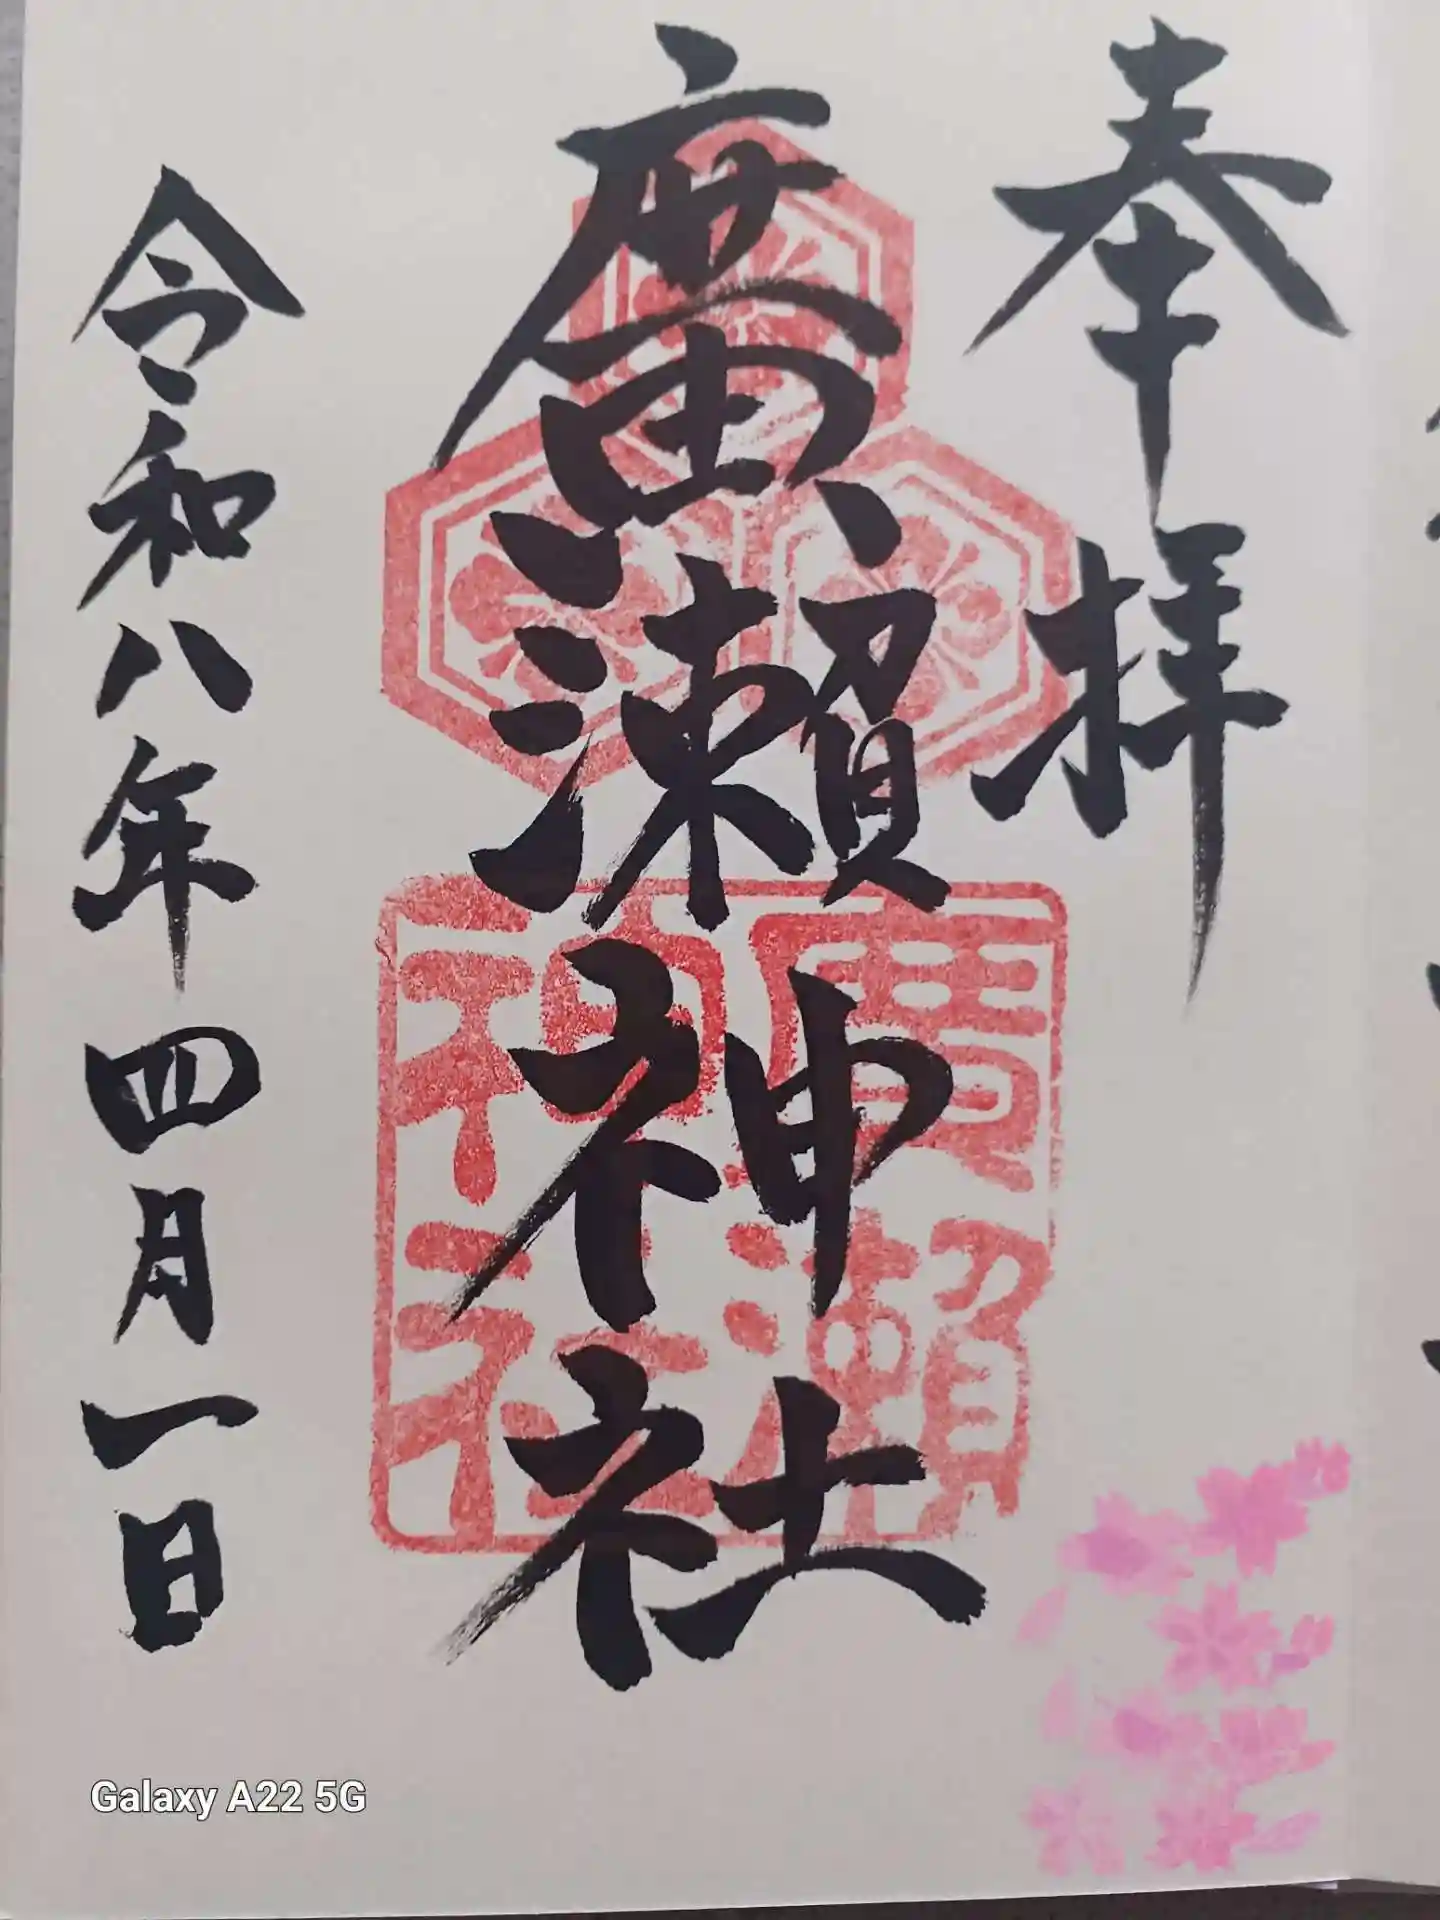 奉拝
廣瀬神社
廣瀬
神社
令和八年四月一日
Galaxy A22 5G